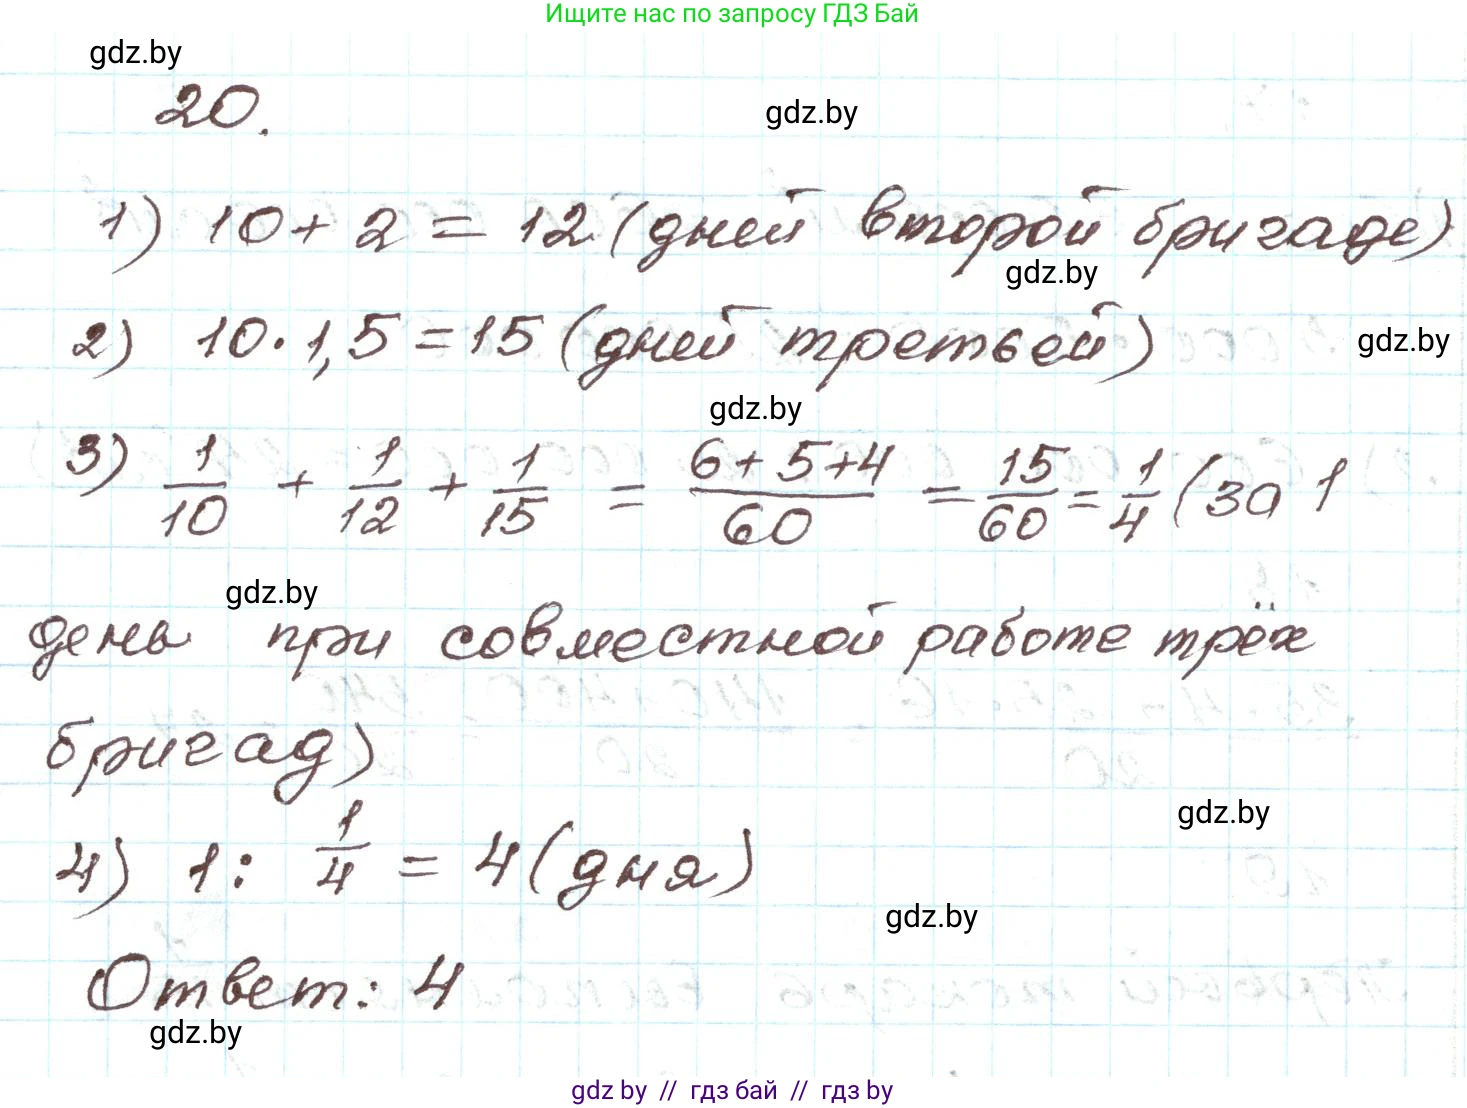 Ищите нас по запросу ГДЗ Бай
gdz.by
20.
gdz.by
1) 10 + 2 = 12 (дней второй бригаде)
gdz.by
2) 10 · 1,5 = 15 (дней третьей)
gdz.by
gdz.by
3) 1/10 + 1/12 + 1/15 = (6 + 5 + 4)/60 = 15/60 = 1/4 (за 1
gdz.by
день при совместной работе трёх
бригад)
gdz.by
4) 1 : 1/4 = 4 (дня)
gdz.by
Ответ: 4
gdz.by
gdz by // гдз бай // гдз by